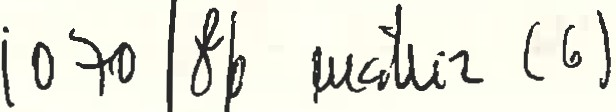 1070 / 8p matriz (6)